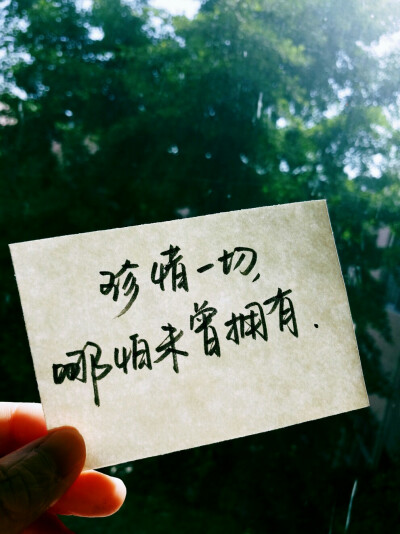 珍惜一切,
哪怕未曾拥有.